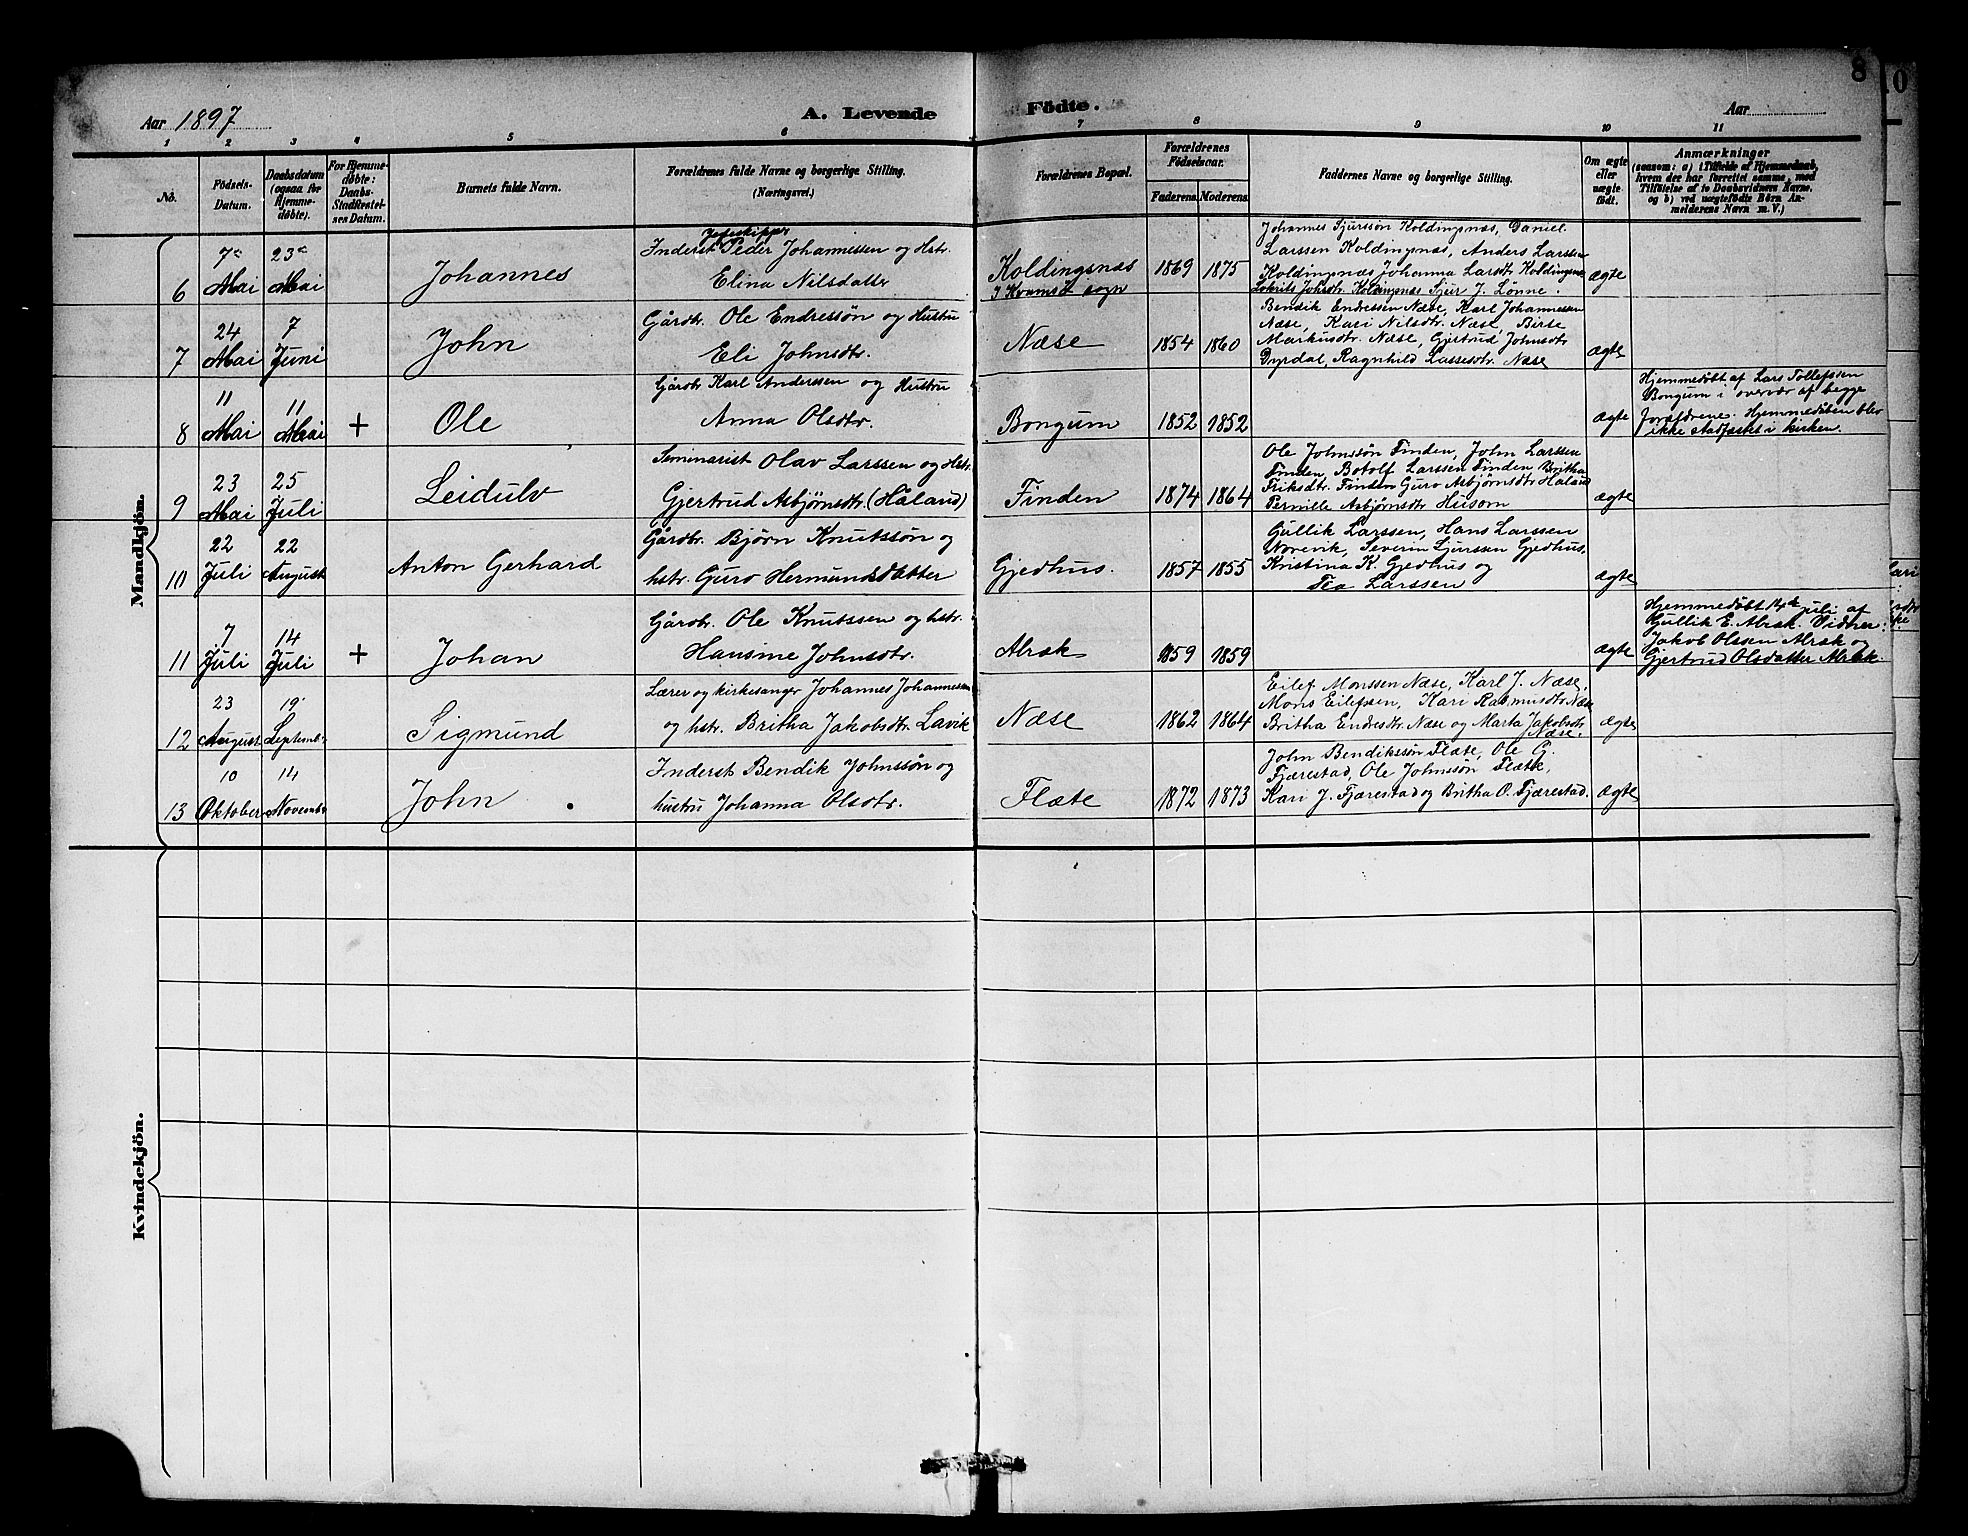 8
0
Aar 1897
A. Levende
Födte.
Aar
1 2 3 4 5 6 7 8 9 10 11
No.
Födsels-
Datum.
Daabsdatum
(ogsaa for
Hjemme-
døbte).
For Hjemme-
døbte:
Daabs-
Stadfæstel-
ses Datum.
Barnets fulde Navn.
Forældrenes fulde Navne og borgerlige Stilling.
(Næringsvei.)
Forældrenes Bopæl.
Forældrenes
Födselsaar.
Faderens. Moderens.
Faddernes Navne og borgerlige Stilling.
Om ægte
eller
uægte
født.
Anmærkninger
(saasom: a) i Tilfælde af Hjemmedaab,
hvem der har forrettet samme, med
Tilföielse af to Daabsvidners Navne,
og b) ved uægtefödte Börn An-
melderens Navn m. V.)
Mandkjön.
6
7de
Mai
23de
Mai
Johannes
Inderst Peder Johannessen og Hstr.
Elina Nilsdatter
Koldingsnæs
I Kvamsö sogn
1869 1875
Johannes Sjurssön Koldingsnæs, Daniel
Larssen Koldingsnæs, Anders Larssen
Koldingsnæs Johanna Larsdtr Koldingsnæs
Johsdtr. Koldingsnæs Sjur J. Lönne.
ægte
7
24
Mai
7
Juni
John
Gårdbr. Ole Endressön og Hustru
Eli Johnsdtr.
Næse
1854 1860
Bendik Endressen Næse, Karl Johannessen
Næse, Kari Nilsdtr. Næse, Birte
Markusdtr. Næse, Gjertrud Johnsdtr
Dyrdal, Ragnhild Lassesdtr. Næse
ægte
8
11
Mai
11
Mai
+
Ole
Gårdbr. Karl Anderssen og Hustru
Anna Olsdtr.
Bongum
1852 1852
ægte
Hjemmedöbt af Lars Tollefssen
Bongum i overvær af begge
forældrene. Hjemmedåben blev
ikke stadfæstet i kirken.
9
23
Mai
25
Juli
Leidulv
Seminarist Olav Larssen og Hstr.
Gjertrud Asbjørnsdtr. (Håland)
Finden
1874 1864
Ole Johnssön Finden, John Larssen
Finden, Botolf Larssen Finden, Britha
Eriksdtr. Finden Guro Asbjørnsdtr Håland
Pernille Asbjørnsdtr Husom
ægte
10
22
Juli
22
August
Anton Gerhard
Gårdbr. Bjørn Knutssön og
hstr. Guro Hermundsdatter
Gjedhus.
1857 1855
Gullik Larssen, Hans Larssen
Norevik, Severin Sjurssen Gjedhus,
Kristina K. Gjedhus og
Tea Larssen
ægte
11
7
Juli
14
Juli
+
Johan
Gårdbr. Ole Knutssen og hstr.
Hansine Johnsdtr.
Alræk
1859 1859
ægte
Hjemmedöbt 14de juli af
Gullik E. Alræk. Vidner:
Jakob Olssen Alræk og
Gjertrud Olsdatter Alræk.
12
23
August
19
Septembr
Sigmund
Lærer og kirkesanger Johannes Johannessen
og hstr. Britha Jakobsdtr. Lavik
Næse
1862 1864
Eilef Monssen Næse, Karl J. Næse,
Mons Eilefssen, Kari Rasmusdtr. Næse
Britha Endresdtr. Næse og Marta Jakobsdtr
Næse.
ægte
13
10
Oktober
14
Novembr
John
Inderst Bendik Johnssön og
hustru Johanna Olsdtr.
Flæte
1872 1873
John Bendikssön Flæte, Ole G.
Fjærestad, Ole Johnssön Flæte,
Kari J. Fjærestad og Britha O. Fjærestad.
ægte
Kvindekjön.